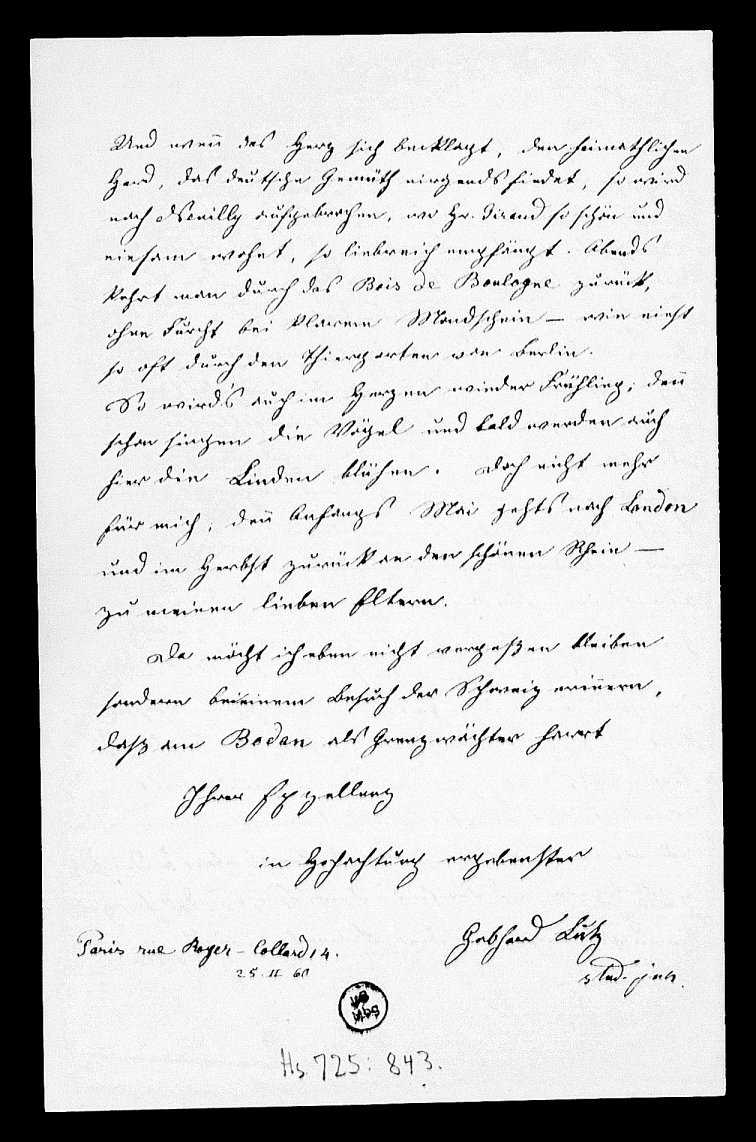 Und wenn das Herz sich beklagt, den heimathlichen
Herd, das deutsche Gemüth nirgends findet, so wird
nach aufgebrochen, wo Hr. so schön und
einsam wohnt, so liebreich empfängt. Abends
kehrt man durch das Bois de Boulogne zurück,
ohne Furcht bei klarem Mondschein — wie einst
so oft durch den Thiergarten von Berlin.
So wird's auch im Herzen wieder Frühling; den̄
schon singen die Vögel und bald werden auch
hier die Linden blühen. Doch nicht mehr
für mich, den̄ Anfangs Mai gehts nach London
und im Herbst zurück an den schönen Rhein —
zu meinen lieben Eltern.
Da möcht ich eben nicht vergeßen bleiben
sondern bei einem Besuch der Schweiz erin̄ern,
daß am Bodan als Grenzwächter harrt
Ihrer Exzellenz
in Hochachtung ergebenster
Gebhard Lutz
stud. jur.
Paris rue Royer-Collard 14.
25. II 60
Hs. 725: 843.